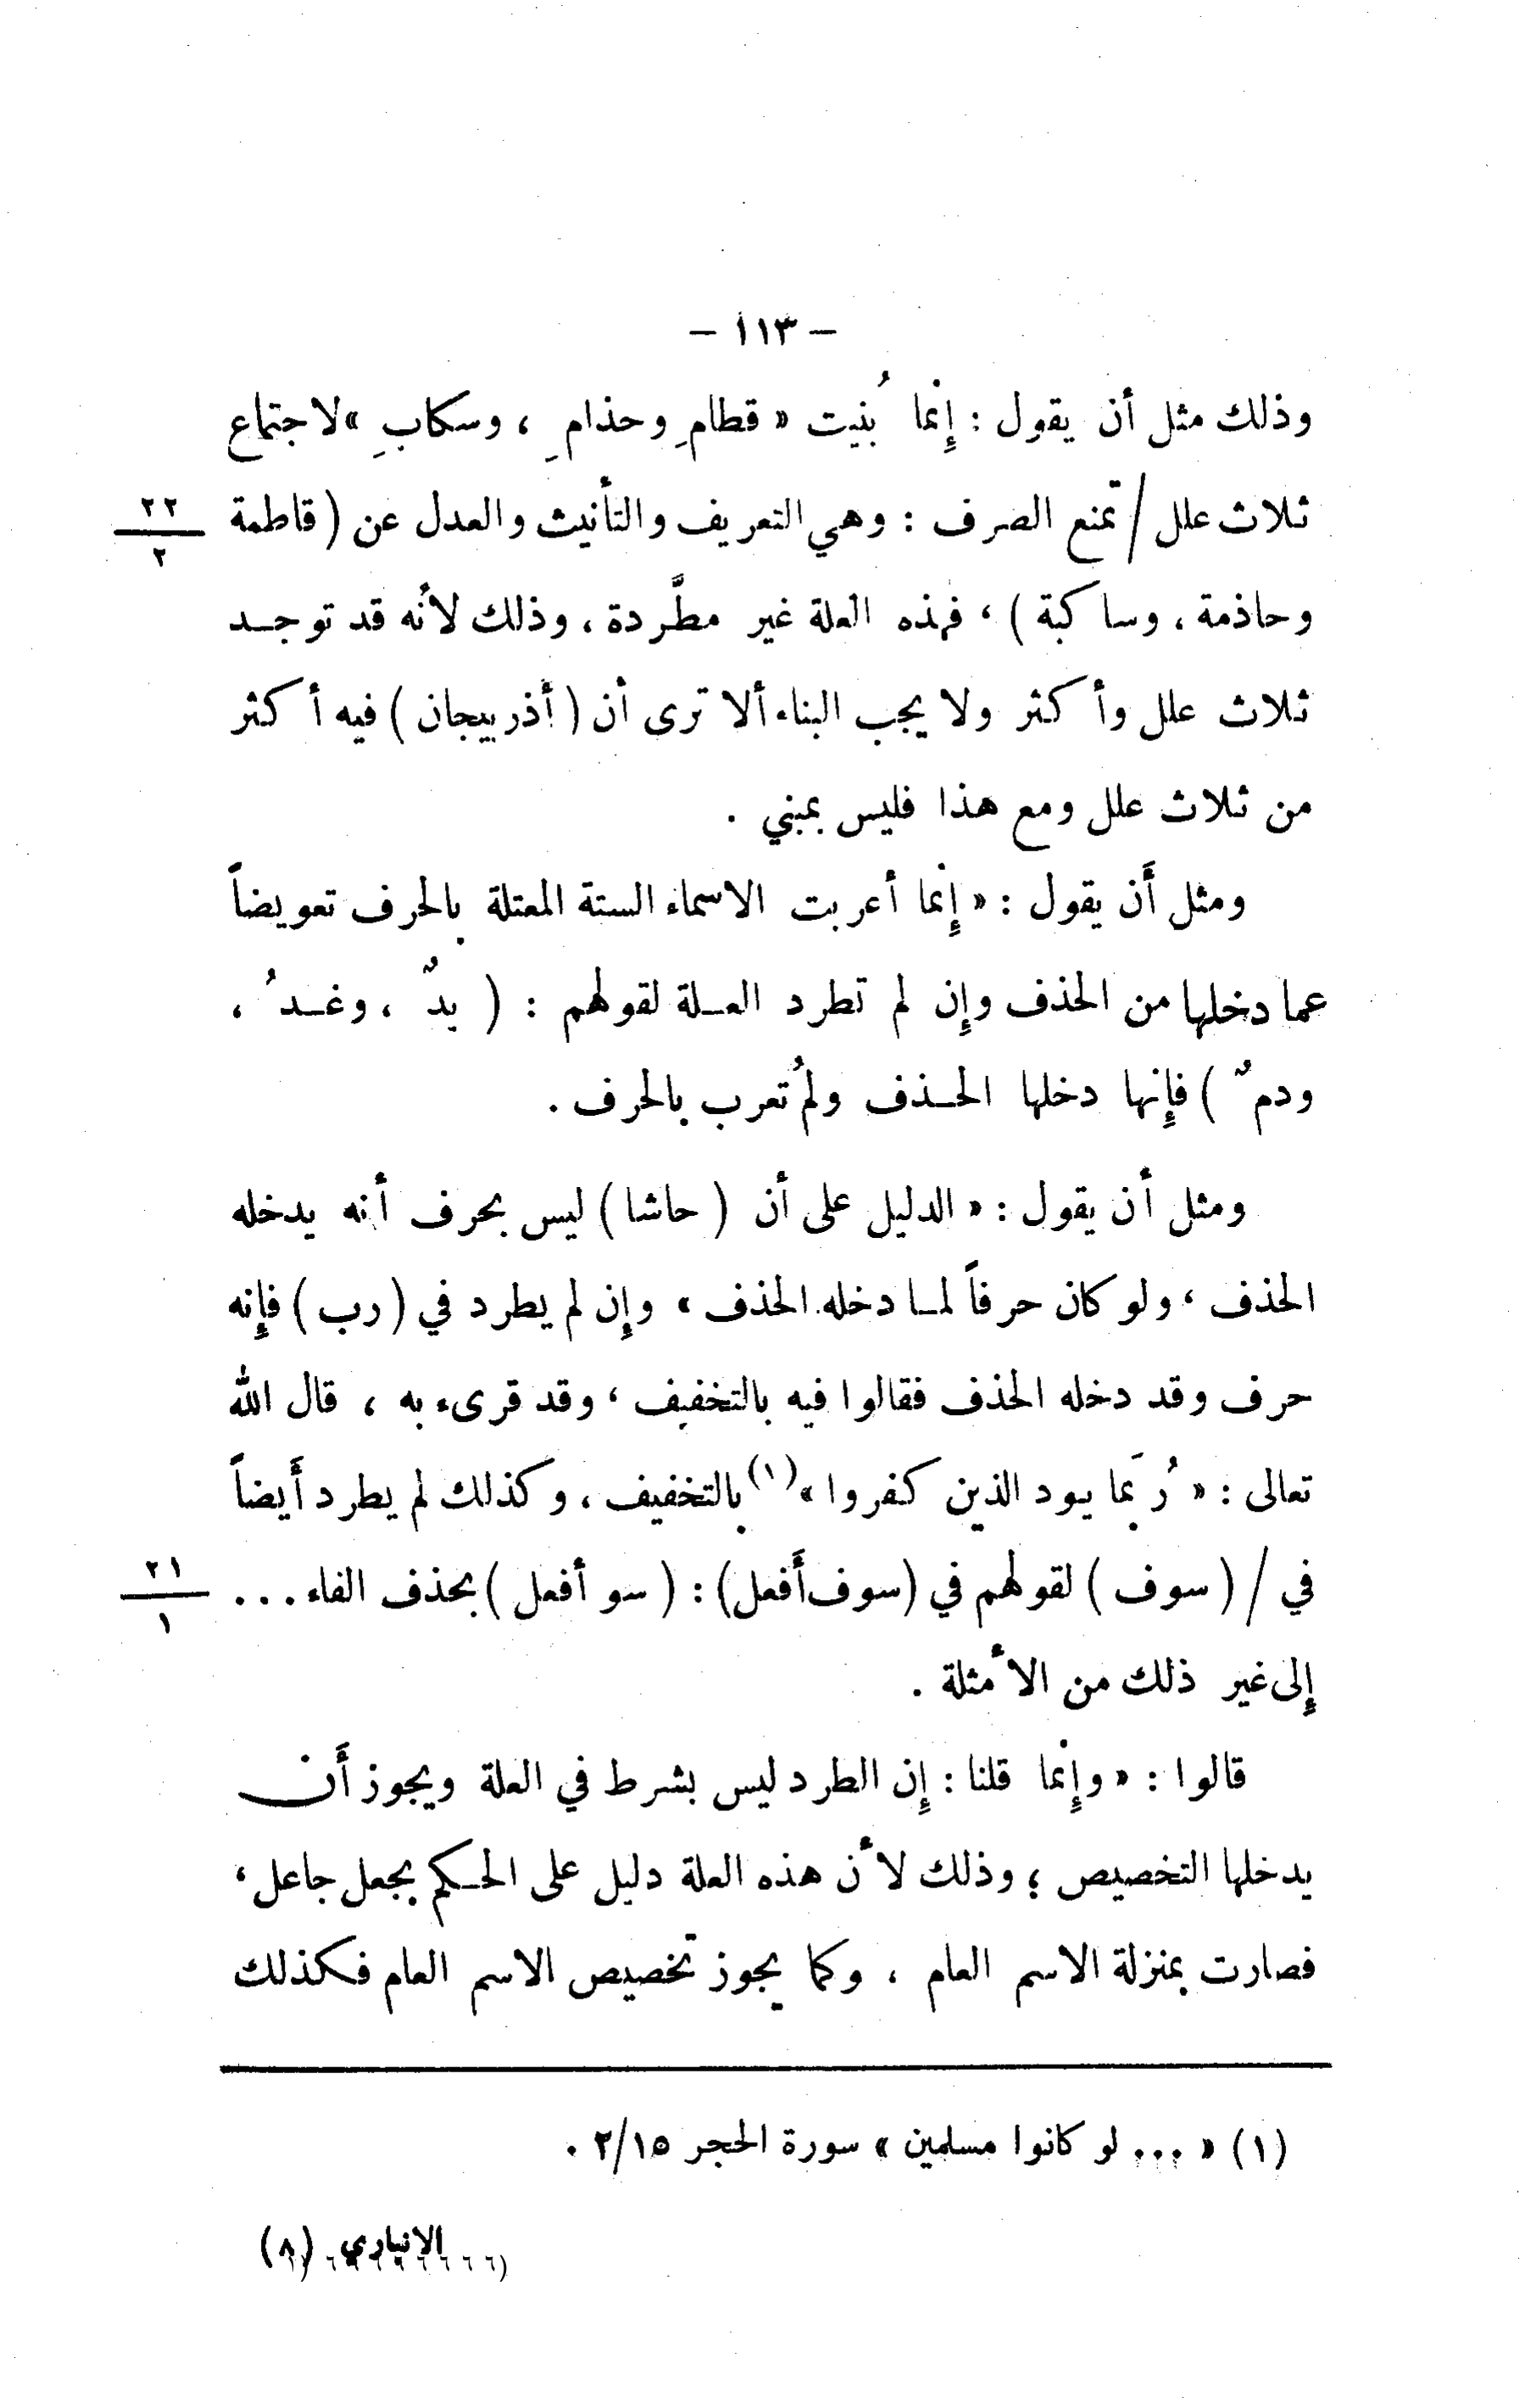 - ١١٣ -
وذلك مثل أن يقول : إنما بُنيت « قطامِ وحذامِ ، وسكابِ » لاجتماع
ثلاث علل / تمنع الصرف : وهي التعريف والتأنيث والعدل عن ( قاطمة
٢٢
٢
وحاذمة ، وساكبة ) ، فهذه العلة غير مطَّردة ، وذلك لأنه قد توجـد
ثلاث علل وأكثر ولا يجب البناء ألا ترى أن ( أذربيجان ) فيه أكثر
من ثلاث علل ومع هذا فليس بمبني .
ومثل أَن يقول : « إنما أعربت الاسماء الستة المعتلة بالحرف تعويضاً
عما دخلها من الحذف وإن لم تطرد العـلة لقولهم : ( يدٌ ، وغـدُ ،
ودمٌ ) فإنها دخلها الحـذف ولم تُعرب بالحرف .
ومثل أن يقول : « الدليل على أن ( حاشا ) ليس بحرف أنه يدخله
الحذف ، ولو كان حرفاً لمـا دخله الحذف » وإن لم يطرد في ( رب ) فإنه
حرف وقد دخله الحذف فقالوا فيه بالتخفيف ، وقد قرىء به ، قال الله
تعالى : « رُبَما يود الذين كفروا »(١) بالتخفيف ، وكذلك لم يطرد أَيضاً
في / ( سوف ) لقولهم في ( سوف أَفعل ) : ( سو أفعل ) بحذف الفاء ...
٢١
١
إلى غير ذلك من الأمثلة .
قالوا : « وإنما قلنا : إن الطرد ليس بشرط في العلة ويجوز أَن
يدخلها التخصيص ؛ وذلك لأن هذه العلة دليل على الحـكم بجعل جاعل ،
فصارت بمنزلة الاسم العام ، وكما يجوز تخصيص الاسم العام فكذلك
(١) « ... لو كانوا مسلمين » سورة الحجر ٢/١٥ .
الانباري (٨)